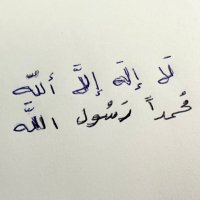 لَا إِلَهَ إِلَّا أللَّه
مُحمداً رَسُول اللَّه